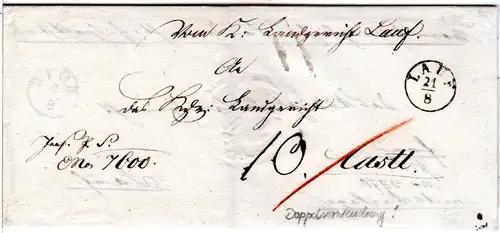 Vom K: Landgericht Lauf.
An
LAUF
21
8
das Landgericht
Jus. P. S.
No. 7600.
10.
Castl.
!